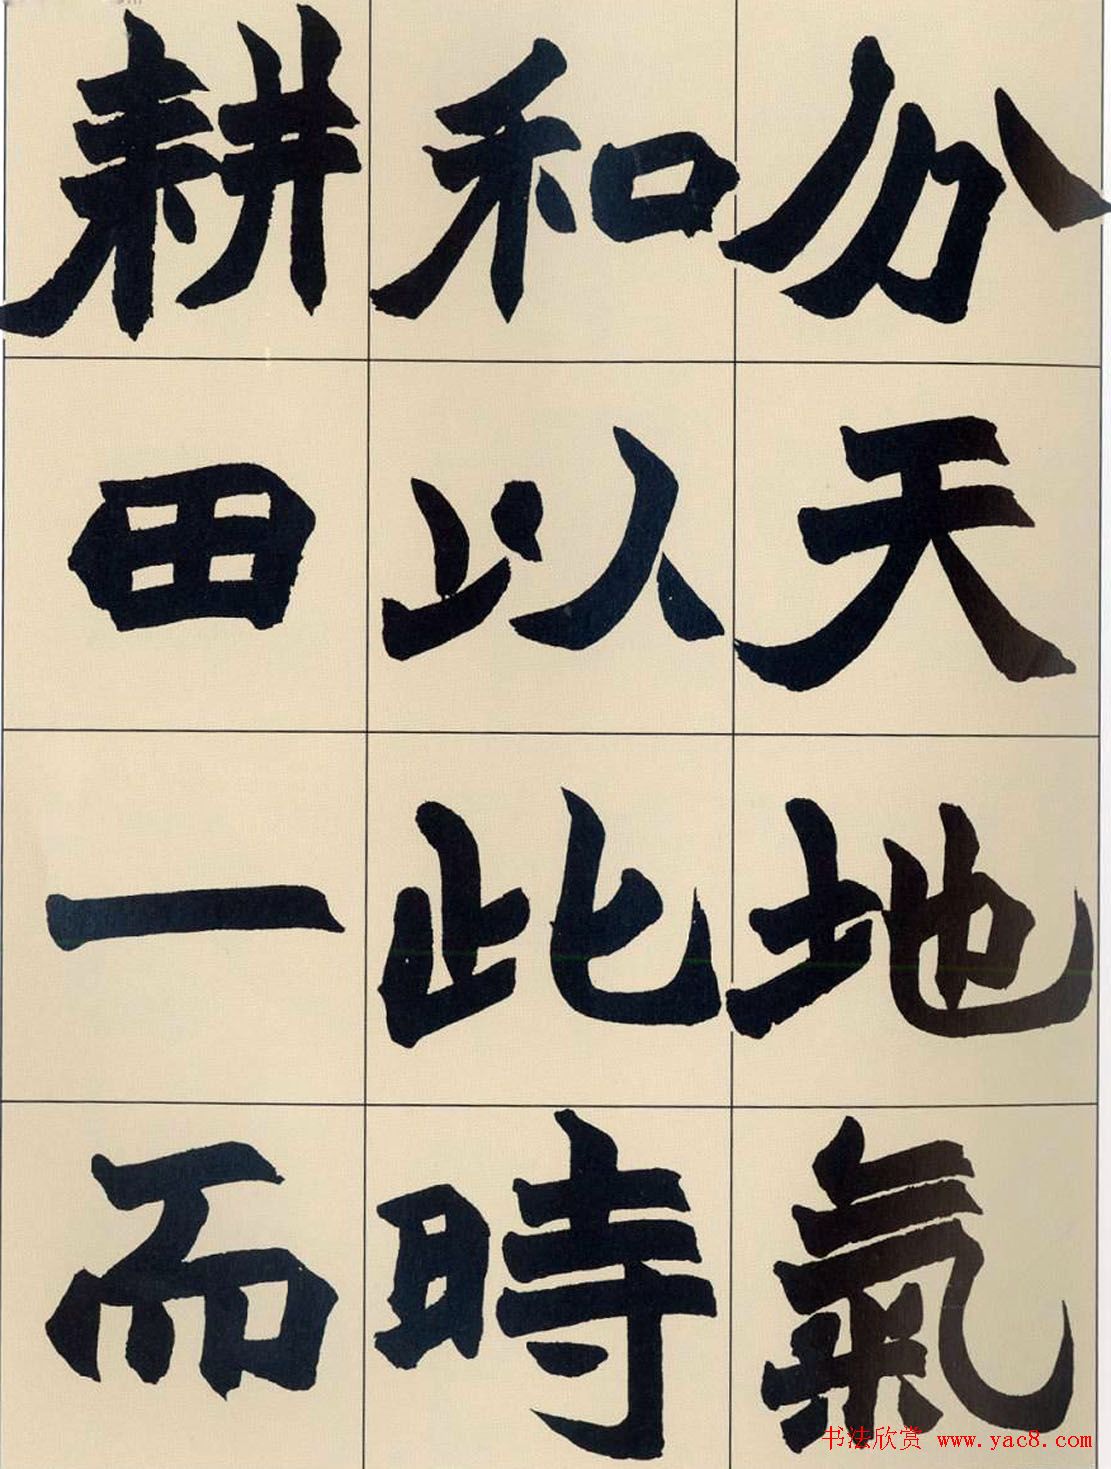 分天地氣
和以此時
耕田一而
书法欣赏 www.yac8.com